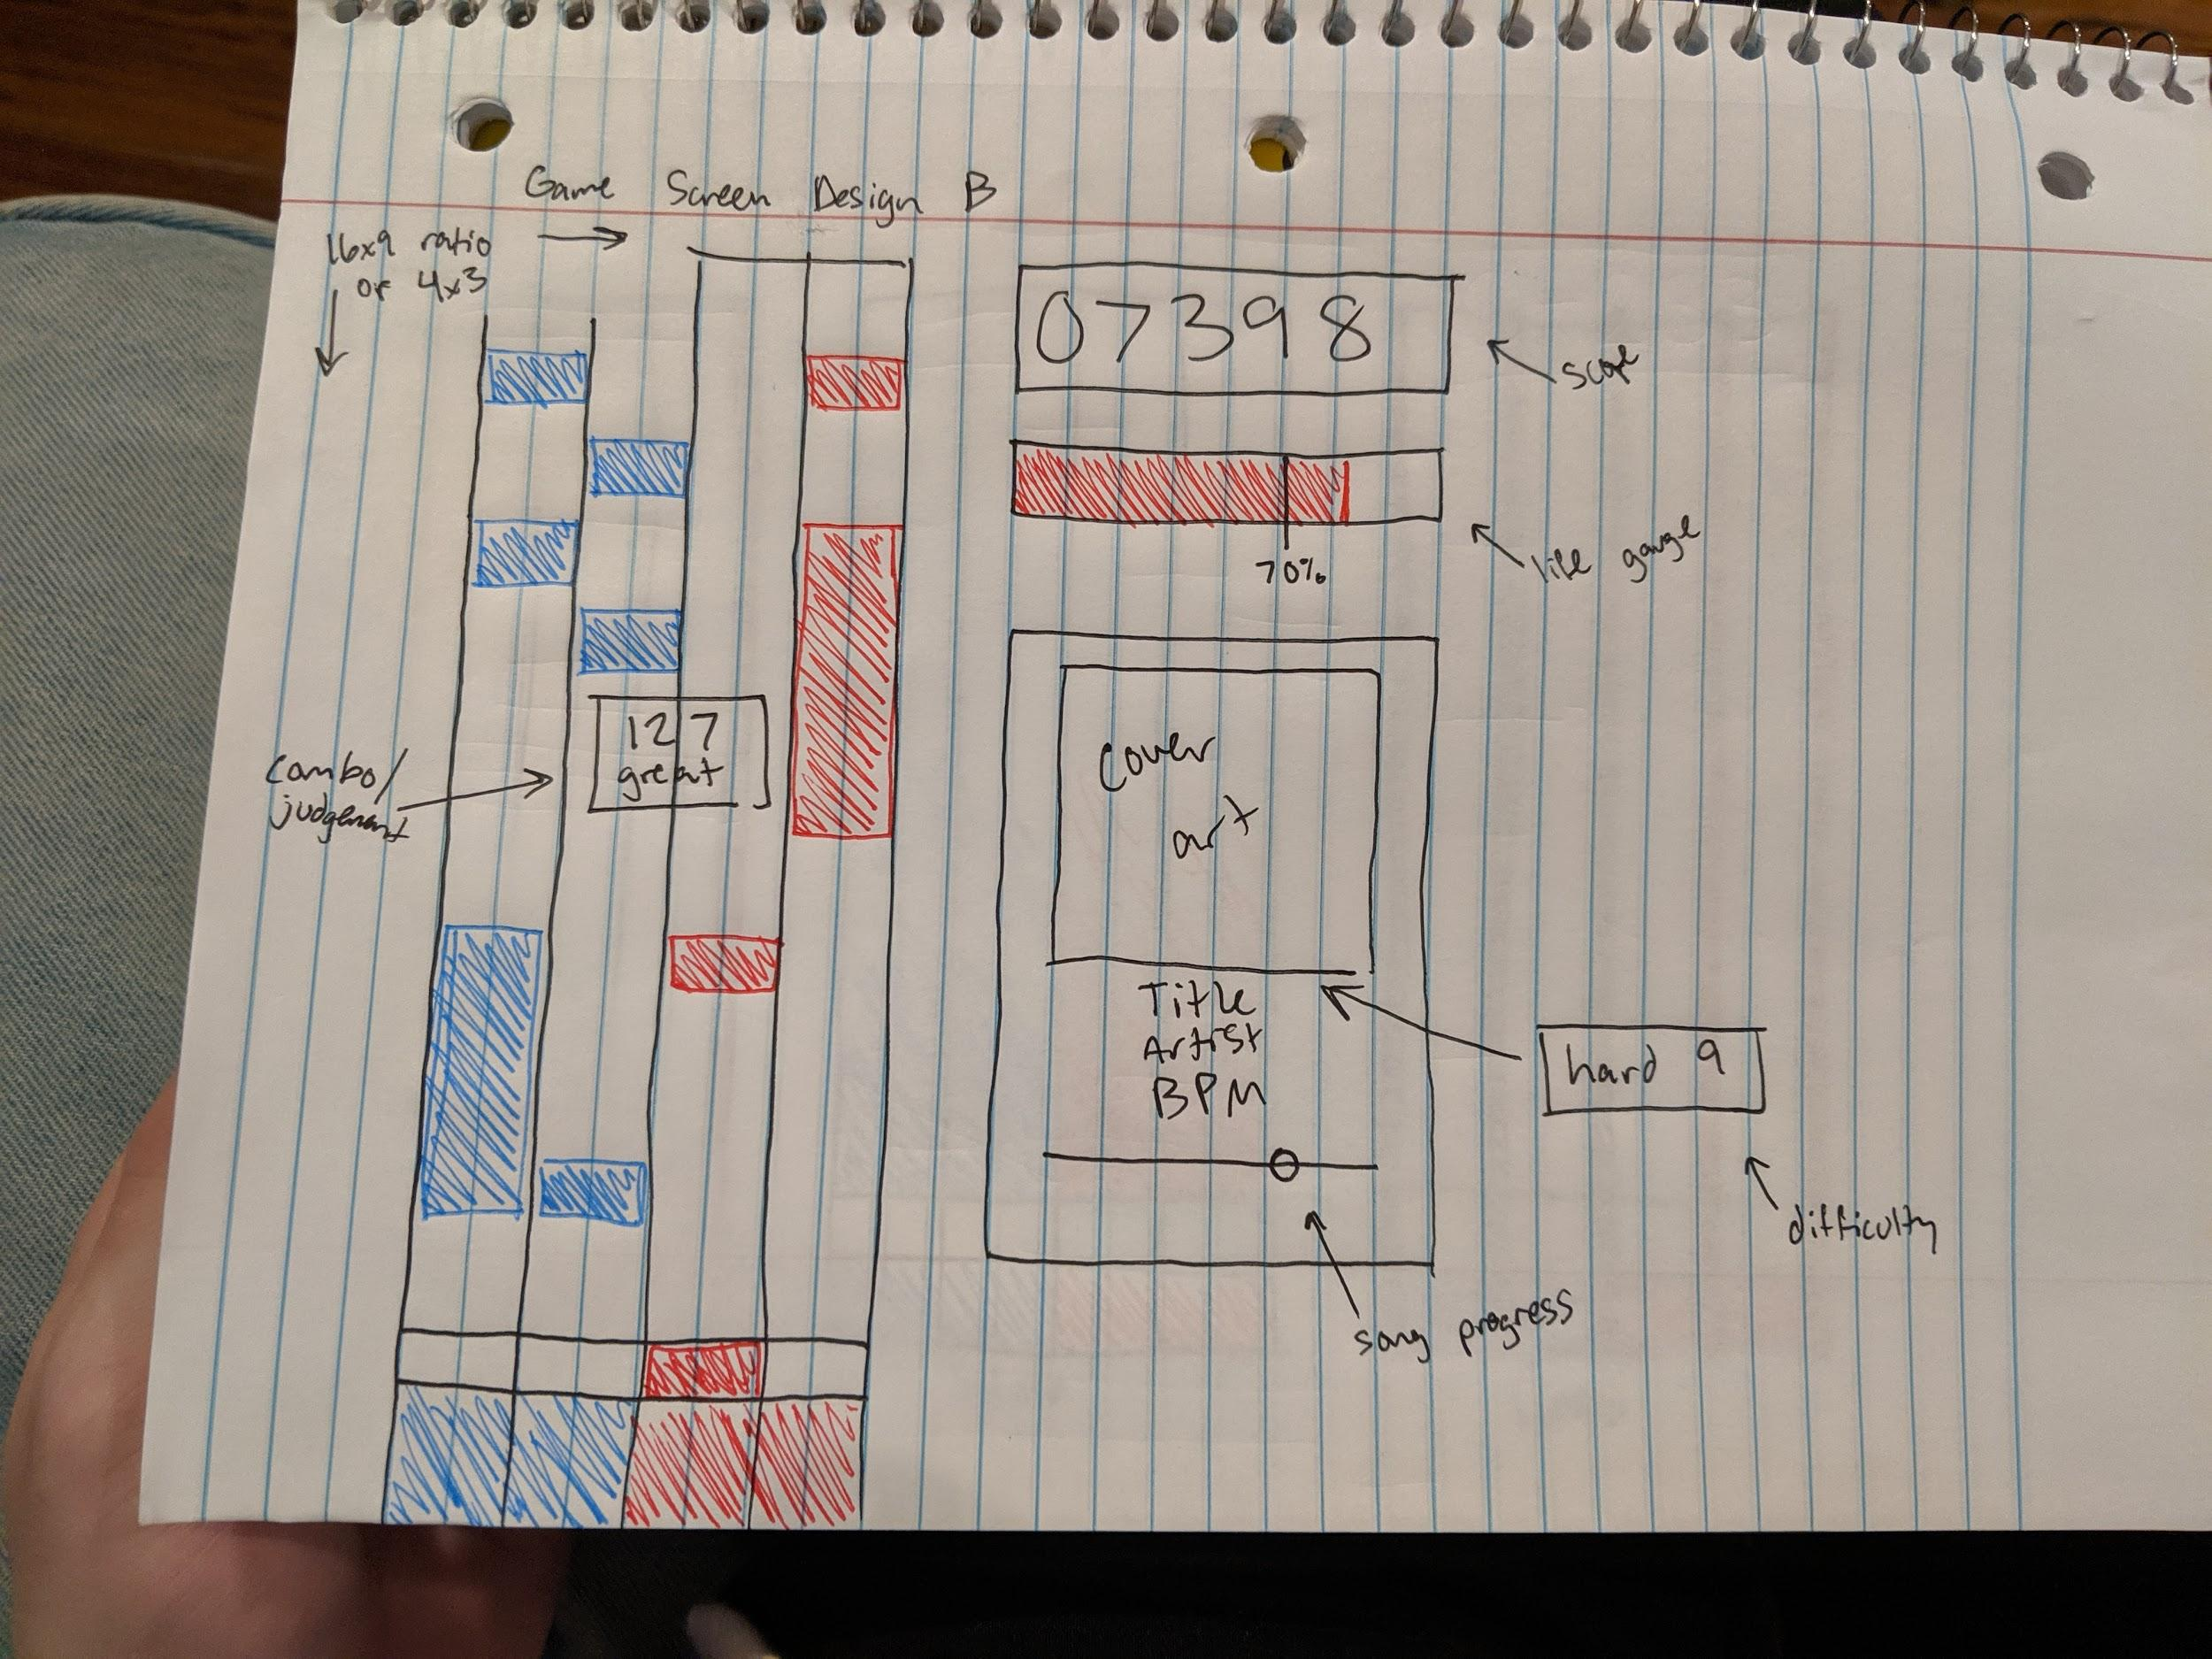 Game Screen Design B
16x9 ratio
or 4x3
07398
score
70%
life gauge
127
great
combo/
judgement
cover
art
Title
Artist
BPM
hard 9
difficulty
song progress